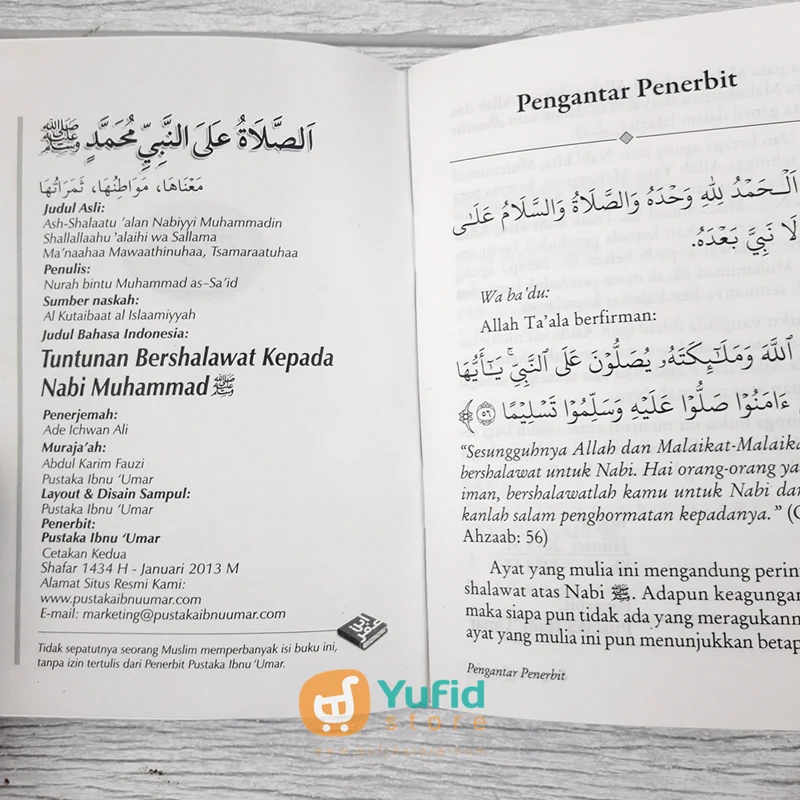 اَلصَّلَاةُ عَلَى النَّبِيِّ مُحَمَّدٍ ﷺ
مَعْنَاهَا، مَوَاطِنُهَا، ثَمَرَاتُهَا
Judul Asli:
Ash-Shalaatu 'alan Nabiyyi Muhammadin
Shallallaahu 'alaihi wa Sallama
Ma'naahaa Mawaathinuhaa, Tsamaraatuhaa
Penulis:
Nurah bintu Muhammad as-Sa'id
Sumber naskah:
Al Kutaibaat al Islaamiyyah
Judul Bahasa Indonesia:
Tuntunan Bershalawat Kepada
Nabi Muhammad ﷺ
Penerjemah:
Ade Ichwan Ali
Muraja'ah:
Abdul Karim Fauzi
Pustaka Ibnu 'Umar
Layout & Disain Sampul:
Pustaka Ibnu 'Umar
Penerbit:
Pustaka Ibnu 'Umar
Cetakan Kedua
Shafar 1434 H - Januari 2013 M
Alamat Situs Resmi Kami:
www.pustakaibnuumar.com
E-mail: marketing@pustakaibnuumar.com
Tidak sepatutnya seorang Muslim memperbanyak isi buku ini,
tanpa izin tertulis dari Penerbit Pustaka Ibnu 'Umar.
Pengantar Penerbit
اَلْحَمْدُ لِلّٰهِ وَحْدَهُ وَالصَّلَاةُ وَالسَّلَامُ عَلَى
لَا نَبِيَّ بَعْدَهُ.
Wa ba'du:
Allah Ta'ala berfirman:
ٱللَّهَ وَمَلَٰٓئِكَتَهُۥ يُصَلُّونَ عَلَى ٱلنَّبِيِّ ۚ يَٰٓأَيُّهَا
ءَامَنُوا۟ صَلُّوا۟ عَلَيْهِ وَسَلِّمُوا۟ تَسْلِيمًا ۝٥٦
"Sesungguhnya Allah dan Malaikat-Malaika
bershalawat untuk Nabi. Hai orang-orang ya
iman, bershalawatlah kamu untuk Nabi dan
kanlah salam penghormatan kepadanya." (Q
Ahzaab: 56)
Ayat yang mulia ini mengandung perin
shalawat atas Nabi ﷺ. Adapun keagungan
maka siapa pun tidak ada yang meragukann
ayat yang mulia ini pun menunjukkan betap
Pengantar Penerbit
Yufid
store